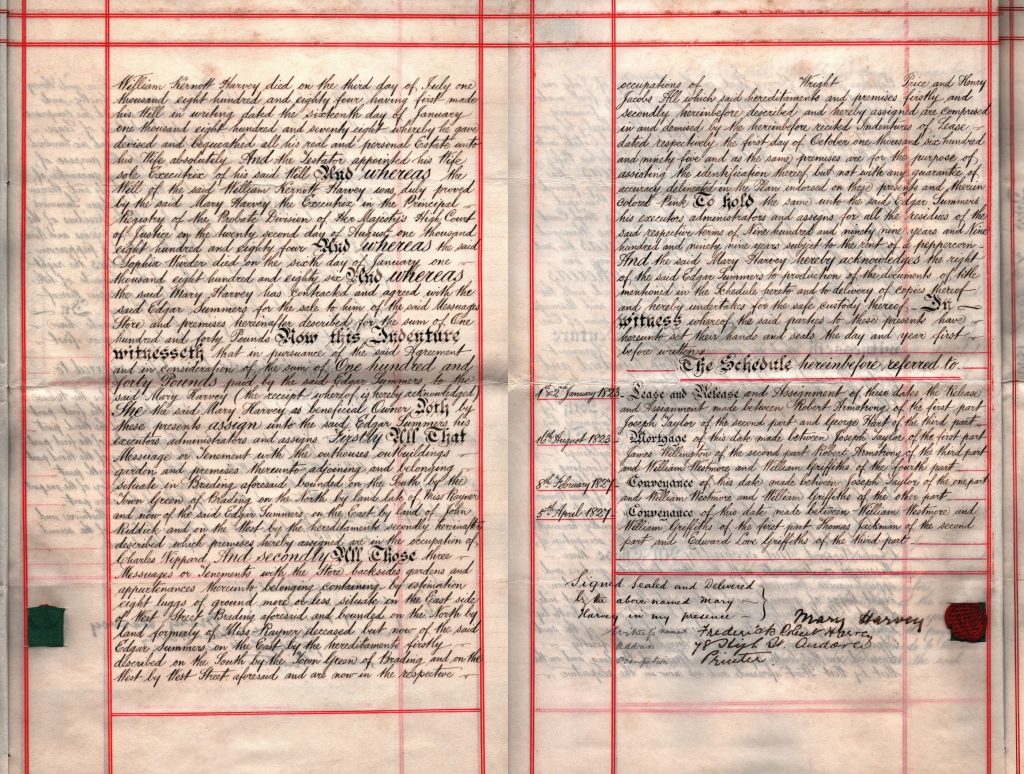 William Kernott Harvey died on the third day of July one
thousand eight hundred and eighty four having first made
his Will in writing dated the sixteenth day of January
one thousand eight hundred and seventy eight whereby he gave
devised and bequeathed all his real and personal Estate unto
his Wife absolutely And the Testator appointed his Wife
sole Executrix of his said Will And whereas the
Will of the said William Kernott Harvey was duly proved
by the said Mary Harvey the Executrix in the Principal
Registry of the Probate Division of Her Majesty's High Court
of Justice on the twenty second day of August one thousand
eight hundred and eighty four And whereas the said
Sophia Warder died on the sixth day of January one
thousand eight hundred and eighty six And whereas
the said Mary Harvey has contracted and agreed with the
said Edgar Summers for the sale to him of the said Messuages
Store and premises hereinafter described for the sum of One
hundred and forty Pounds Now this Indenture
witnesseth that in pursuance of the said Agreement
and in consideration of the sum of One hundred and
forty Pounds paid by the said Edgar Summers to the
said Mary Harvey (the receipt whereof is hereby acknowledged)
She the said Mary Harvey as beneficial Owner Doth by
these presents assign unto the said Edgar Summers his
executors administrators and assigns Firstly All That
Messuage or Tenement with the outhouses outbuildings
garden and premises thereunto adjoining and belonging
situate in Brading aforesaid bounded on the South by the
Town Green of Brading on the North by land late of Miss Rayner
and now of the said Edgar Summers on the East by land of John
Riddick and on the West by the hereditaments secondly hereinafter
described which premises hereby assigned are in the occupation of
Charles Nippard And secondly All Those three
Messuages or Tenements with the Store backsides gardens and
appurtenances thereunto belonging containing by estimation
eight luggs of ground more or less situate on the East side
of West Street Brading aforesaid and bounded on the North by
land formerly of Miss Rayner deceased but now of the said
Edgar Summers on the East by the hereditaments firstly
described on the South by the Town Green of Brading and on the
West by West Street aforesaid and are now in the respective
occupations of Wright Price and Henry
Jacobs All which said hereditaments and premises firstly and
secondly hereinbefore described and hereby assigned are comprised
in and demised by the hereinbefore recited Indentures of Lease
dated respectively the first day of October one thousand six hundred
and ninety five and as the same premises are for the purpose of
assisting the identification thereof but not with any guarantee of
accuracy delineated in the Plan indorsed on these presents and therein
colored Pink To hold the same unto the said Edgar Summers
his executors administrators and assigns for all the residues of the
said respective terms of Nine hundred and ninety nine years and Nine
hundred and ninety nine years subject to the rent of a peppercorn
And the said Mary Harvey hereby acknowledges the right
of the said Edgar Summers to production of the documents of title
mentioned in the Schedule hereto and to delivery of copies thereof
and hereby undertakes for the safe custody thereof In
witness whereof the said parties to these presents have
hereunto set their hands and seals the day and year first
before written
The Schedule hereinbefore referred to
1st & 2nd January 1823 Lease and Release and Assignment of these dates the Release
and Assignment made between Robert Armstrong of the first part
Joseph Taylor of the second part and George Hart of the third part
16th August 1823 Mortgage of this date made between Joseph Taylor of the first part
James Willington of the second part Robert Armstrong of the third part
and William Westmore and William Griffiths of the fourth part
8th February 1827 Conveyance of this date made between Joseph Taylor of the one part
and William Westmore and William Griffiths of the other part
5th April 1827 Conveyance of this date made between William Westmore and
William Griffiths of the first part Thomas Jackman of the second
part and Edward Love Griffiths of the third part
Signed sealed and delivered
by the above named Mary
Harvey in my presence
Mary Harvey
Witness's name Frederick Robert Harvey
Address 78 High St. Andover
Occupation Printer